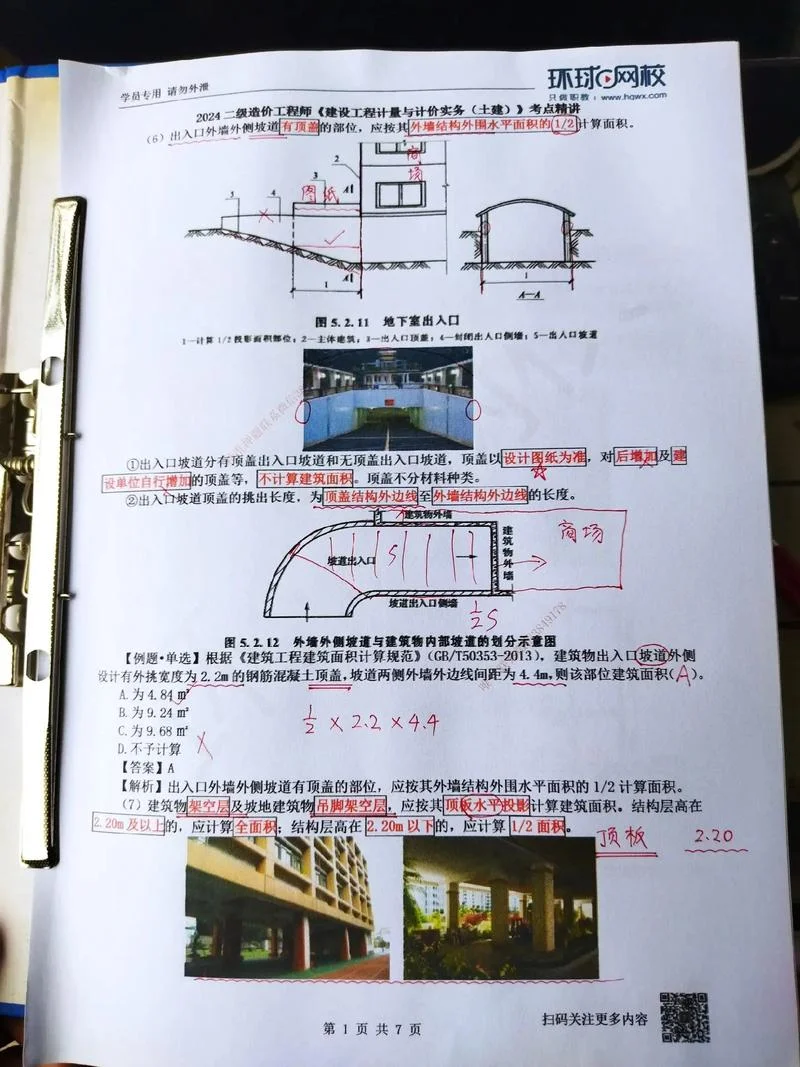 学员专用 请勿外泄
环球网校
只做职教：www.hqwx.com
2024 二级造价工程师《建设工程计量与计价实务（土建）》考点精讲
（6）出入口外墙外侧坡道有顶盖的部位，应按其外墙结构外围水平面积的1/2计算面积。
商场
图纸
5 4 3 2 A A
1 1
A—A
图 5.2.11 地下室出入口
1—计算 1/2 投影面积部位；2—主体建筑；3—出入口顶盖；4—封闭出入口侧墙；5—出入口坡道
①出入口坡道分有顶盖出入口坡道和无顶盖出入口坡道，顶盖以设计图纸为准，对后增加及建
设单位自行增加的顶盖等，不计算建筑面积。顶盖不分材料种类。
②出入口坡道顶盖的挑出长度，为顶盖结构外边线至外墙结构外边线的长度。
建筑物外墙
坡道出入口 S
建筑物外墙
商场
坡道出入口侧墙
1/2 S
图 5.2.12 外墙外侧坡道与建筑物内部坡道的划分示意图
【例题·单选】根据《建筑工程建筑面积计算规范》（GB/T50353-2013），建筑物出入口坡道外侧
设计有外挑宽度为 2.2m 的钢筋混凝土顶盖，坡道两侧外墙外边线间距为 4.4m，则该部位建筑面积（A）。
A. 为 4.84 ㎡
B. 为 9.24 ㎡
C. 为 9.68 ㎡
D. 不予计算
1/2 × 2.2 × 4.4
【答案】A
【解析】出入口外墙外侧坡道有顶盖的部位，应按其外墙结构外围水平面积的 1/2 计算面积。
（7）建筑物架空层及坡地建筑物吊脚架空层，应按其顶板水平投影计算建筑面积。结构层高在
2.20m 及以上的，应计算全面积；结构层高在 2.20m 以下的，应计算 1/2 面积。
顶板 2.20
第 1 页 共 7 页
扫码关注更多内容